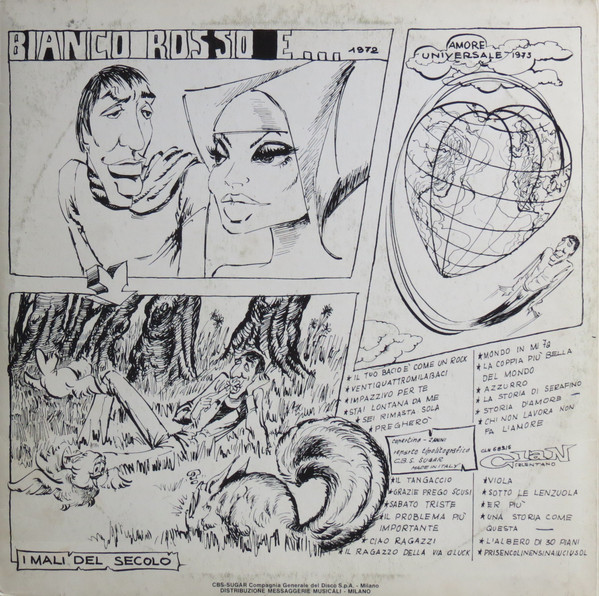 BIANCO ROSSO E... 1972
AMORE
UNIVERSALE - 1973
★ IL TUO BACIO È COME UN ROCK
★ VENTIQUATTROMILABACI
★ IMPAZZIVO PER TE
★ STAI LONTANA DA ME
★ SEI RIMASTA SOLA
★ PREGHERO'
★ MONDO IN MI 7a
★ LA COPPIA PIU' BELLA
DEL MONDO
★ AZZURRO
★ LA STORIA DI SERAFINO
★ STORIA D'AMORE —
★ CHI NON LAVORA NON
FA L'AMORE
reparto tipolitografico
C.B.S. SUGAR
MADE IN ITALY
CLN 69616
CLAN
CELENTANO
★ IL TANGACCIO
★ GRAZIE PREGO SCUSI
★ SABATO TRISTE
★ IL PROBLEMA PIU'
IMPORTANTE
★ CIAO RAGAZZI
★ IL RAGAZZO DELLA VIA GLUCK
★ VIOLA
★ SOTTO LE LENZUOLA
★ ER PIU'
★ UNA STORIA COME
QUESTA —
★ L'ALBERO DI 30 PIANI
★ PRISENCOLINENSINAIUCIUSOL
I MALI DEL SECOLO
CBS-SUGAR Compagnia Generale del Disco S.p.A. - Milano
DISTRIBUZIONE MESSAGGERIE MUSICALI - MILANO